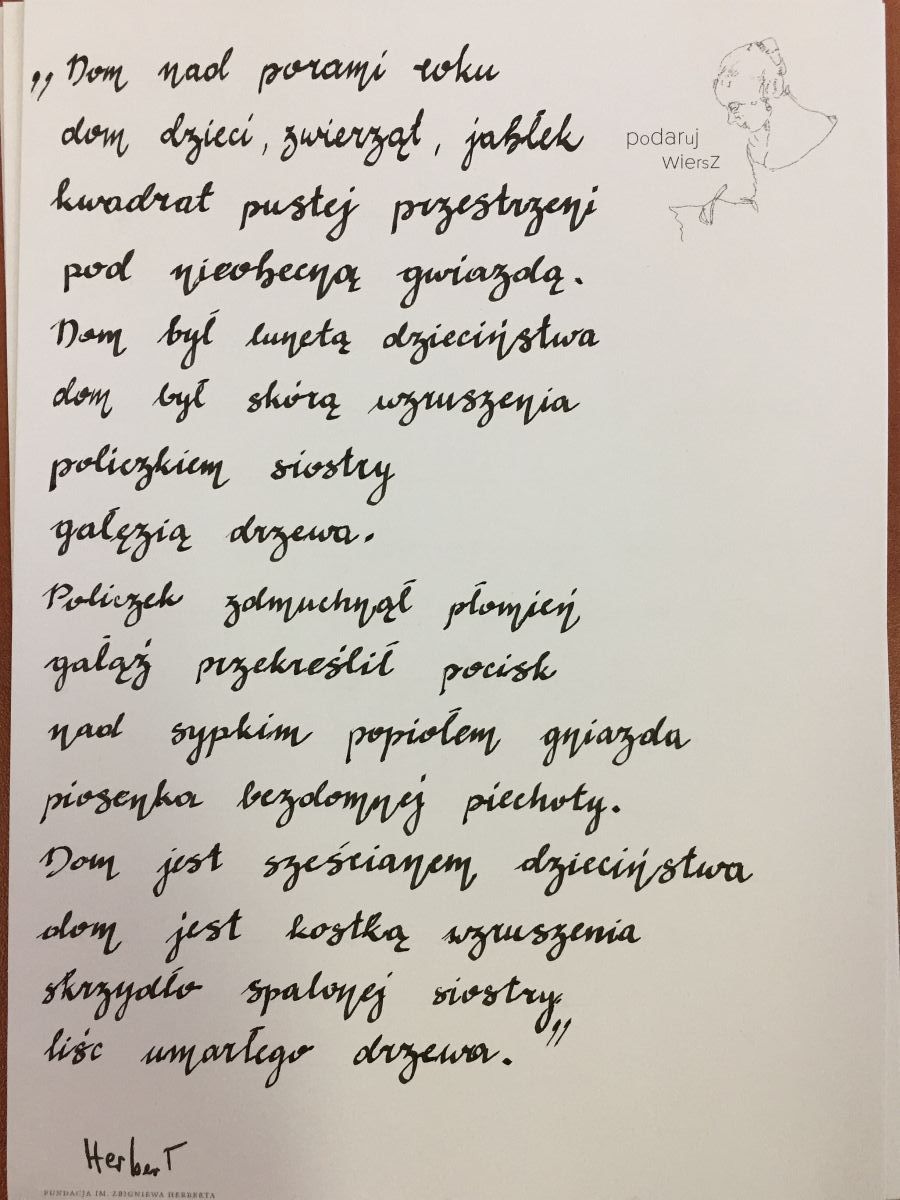 „Dom nad porami roku
dom dzieci, zwierząt, jabłek
kwadrat pustej przestrzeni
pod nieobecną gwiazdą.
Dom był lunetą dzieciństwa
dom był skórą wzruszenia
policzkiem siostry
gałęzią drzewa.
Policzek zdmuchnął płomień
gałąź przekreślił pocisk
nad sypkim popiołem gniazda
piosenka bezdomnej piechoty.
Dom jest sześcianem dzieciństwa
dom jest kostką wzruszenia
skrzydło spalonej siostry
liść umarłego drzewa.”
HerberT
podaruj
WiersZ
FUNDACJA IM. ZBIGNIEWA HERBERTA